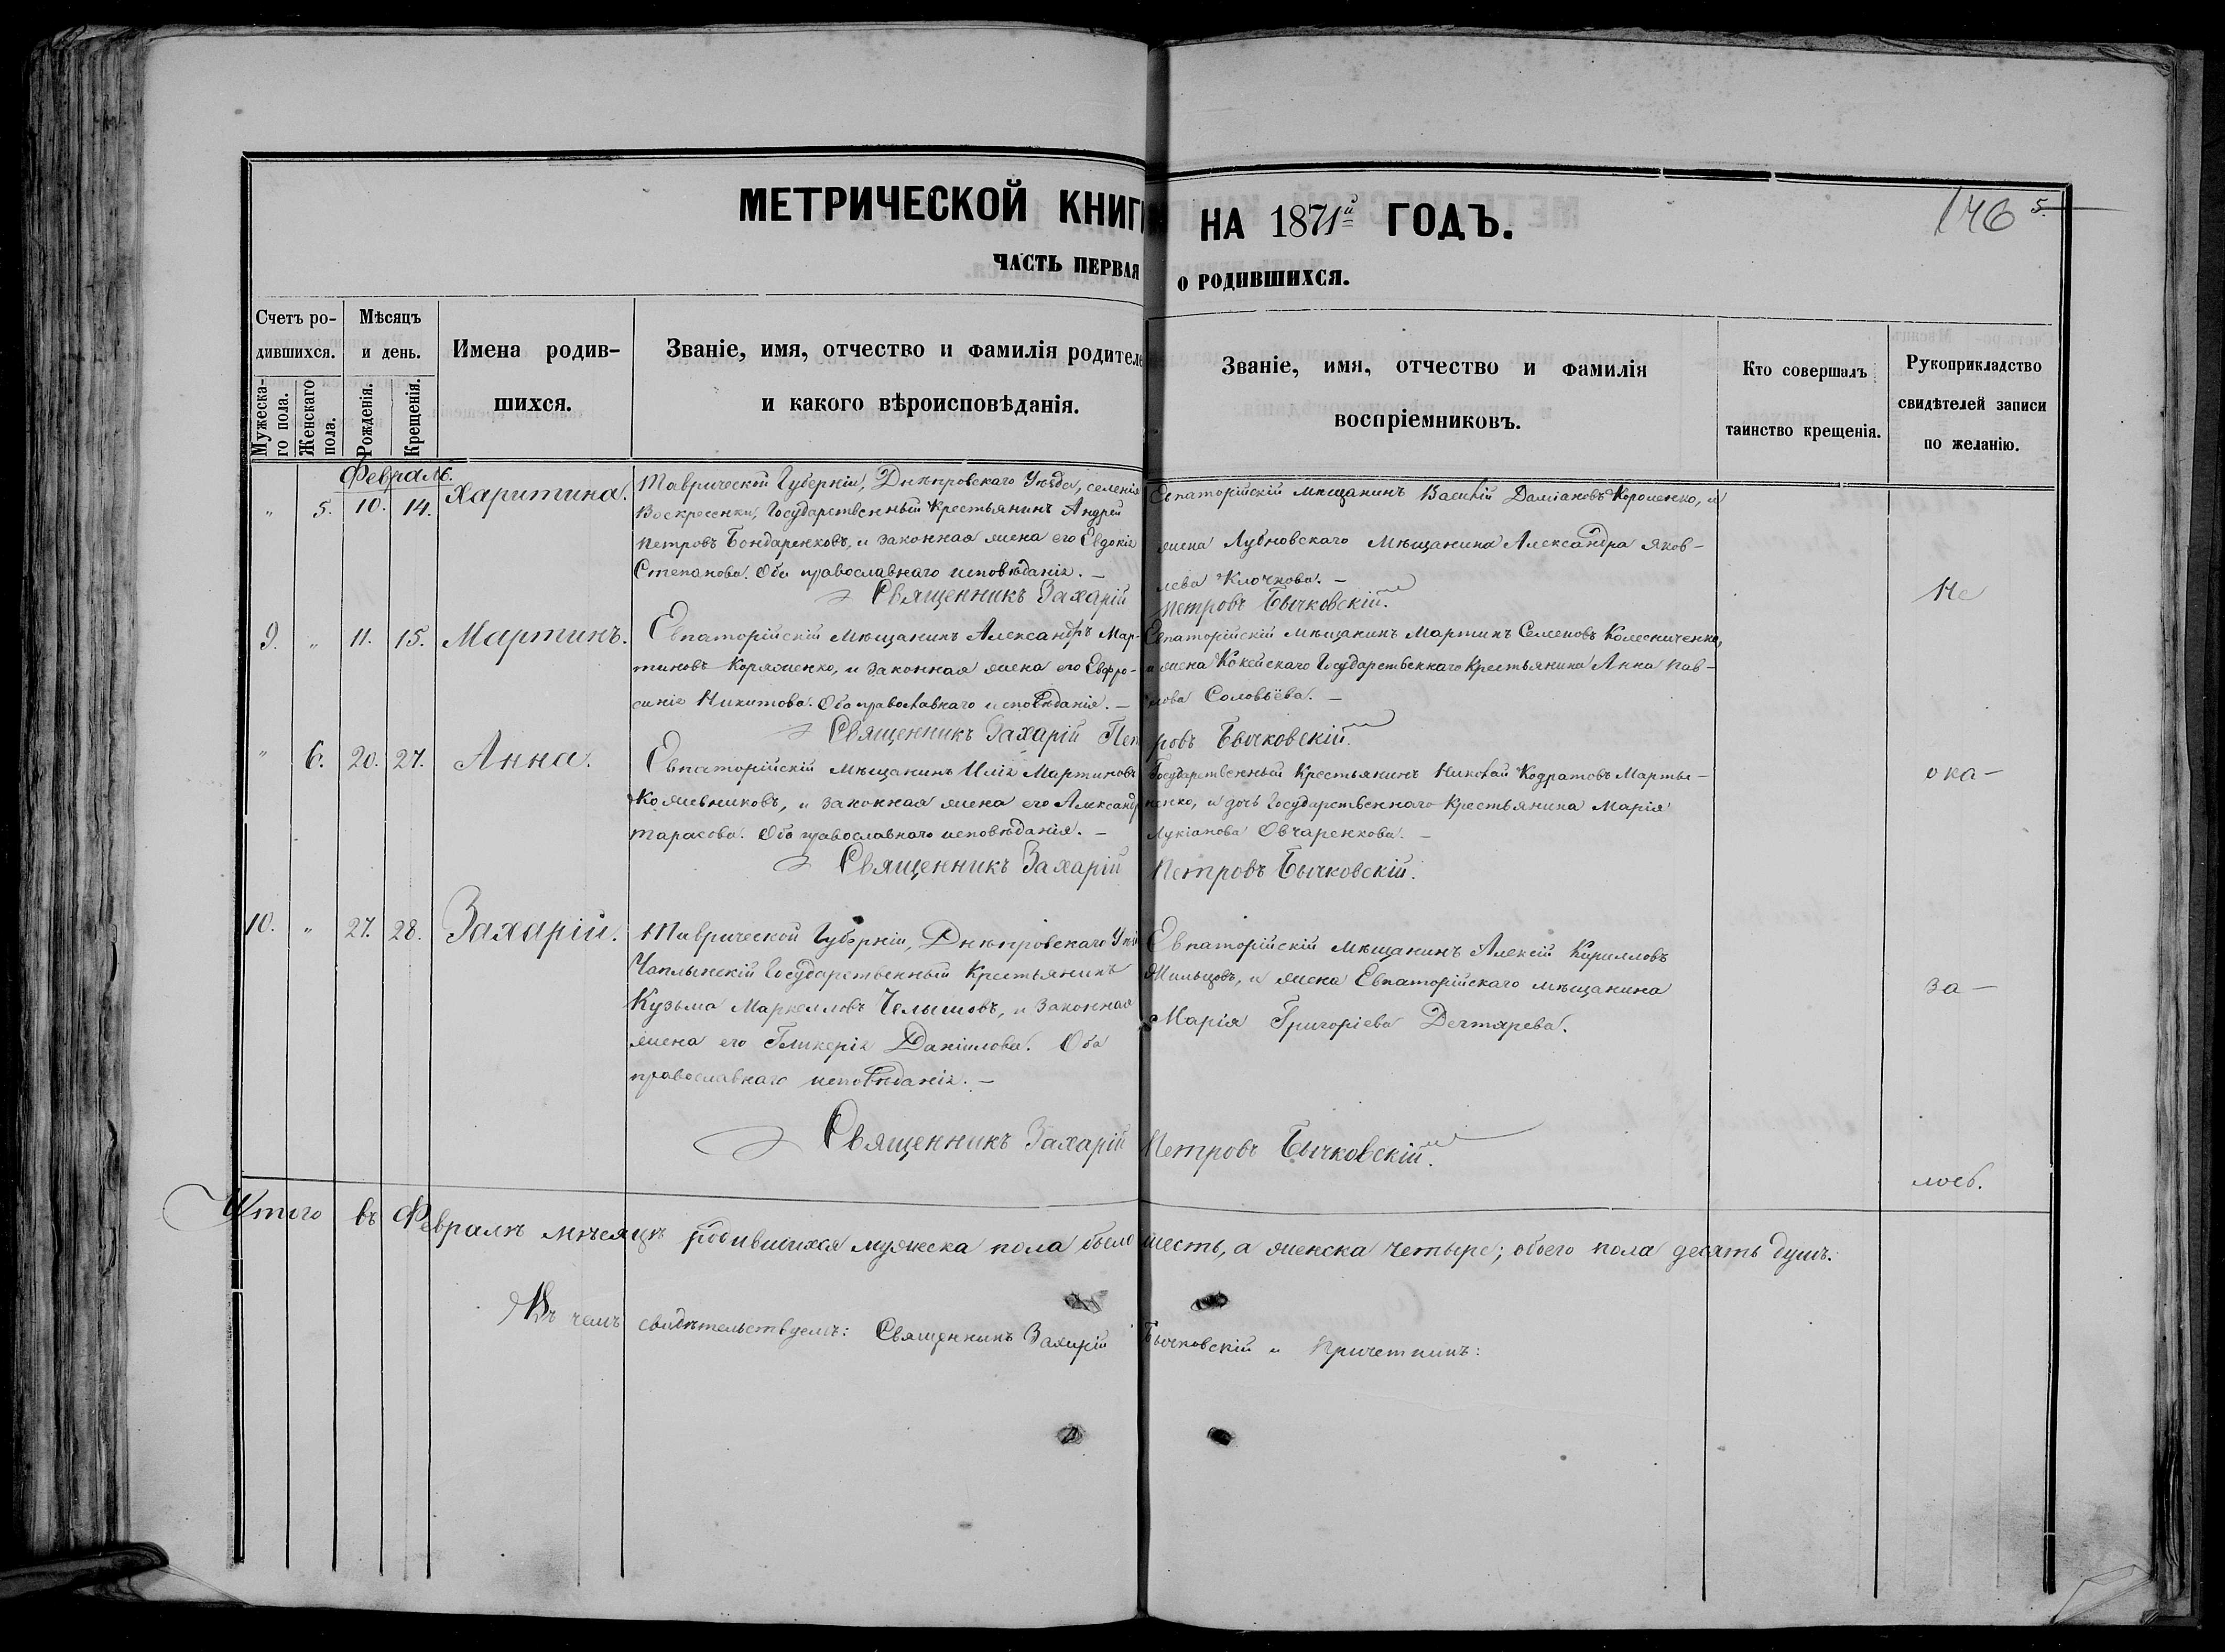 МЕТРИЧЕСКОЙ КНИГИ НА 1871й ГОДЪ.
146 5.
ЧАСТЬ ПЕРВАЯ О РОДИВШИХСЯ.
Счетъ ро-
дившихся.
Мужеска-
го пола.
Женскаго
пола.
Мѣсяцъ
и день.
Рожденія.
Крещенія.
Имена родив-
шихся.
Званіе, имя, отчество и фамилія родителе
и какого вѣроисповѣданія.
Званіе, имя, отчество и фамилія
воспріемниковъ.
Кто совершалъ
таинство крещенія.
Рукоприкладство
свидѣтелей записи
по желанію.
Февраль.
" 5. 10. 14. Харитина.
Таврической Губерніи, Днѣпровскаго Уѣзда, селенія
Воскресенки, Государственный Крестьянинъ Андрей
Петровъ Бондаренковъ, и законная жена его Евдокія
Степанова. Оба православнаго исповѣданія. —
Евпаторійскій мѣщанинъ Василій Даміановъ Короленко, и
жена Лубновскаго Мѣщанина Александра Яков-
лева Клочкова. —
Священникъ Захарій Петровъ Бычковскій.
Не
9. " 11. 15. Мартинъ.
Евпаторійскій Мѣщанинъ Александръ Мар-
тиновъ Коряженко, и законная жена его Евфро-
синія Никитова. Оба православнаго исповѣданія. —
Евпаторійскій Мѣщанинъ Мартинъ Семеновъ Колесниченко,
и жена Государственнаго Крестьянина Анна Пав-
лова Соловьёва. —
Священникъ Захарій Петровъ Бычковскій.
" 6. 20. 27. Анна.
Евпаторійскій мѣщанинъ Илія Мартиновъ
Кожевниковъ, и законная жена его Александр
Тарасова. Оба православнаго исповѣданія. —
Государственный Крестьянинъ Николай Кодратовъ Марты-
ненко, и дочь Государственнаго Крестьянина Марія
Лукіанова Овчаренкова. —
ока-
Священникъ Захарій Петровъ Бычковскій.
10. " 27. 28. Захарій.
Таврической Губерніи, Днѣпровскаго Уѣз
Чаплынскій Государственный Крестьянинъ
Кузьма Маркелловъ Челышовъ, и законная
жена его Гликерія Даніилова. Оба
православнаго исповѣданія. —
Евпаторійскій Мѣщанинъ Алексій Кирилловъ
Жильцовъ, и жена Евпаторійскаго мѣщанина
Марія Григоріева Дегтярева.
за-
Священникъ Захарій Петровъ Бычковскій.
лось.
Итого въ Февралѣ мѣсяцѣ родившихся мужеска пола было шесть, а женска четыре; обоего пола десять душъ.
Въ чемъ свидѣтельствуемъ: Священникъ Захарій Бычковскій и Причетникъ: